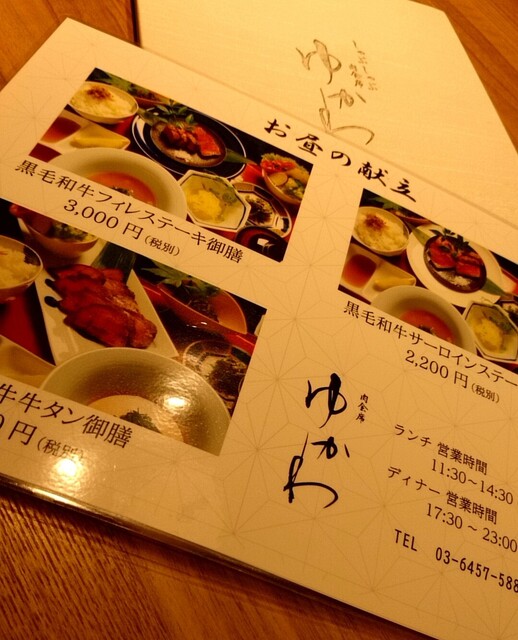 しゃぶしゃぶ
肉会席
ゆかわ
お昼の献立
黒毛和牛フィレステーキ御膳
3,000円(税別)
黒毛和牛サーロインステー
2,200円(税別)
牛牛タン御膳
0円(税別)
肉会席
ゆかわ
ランチ 営業時間
11:30～14:30
ディナー 営業時間
17:30～23:00
TEL 03-6457-588